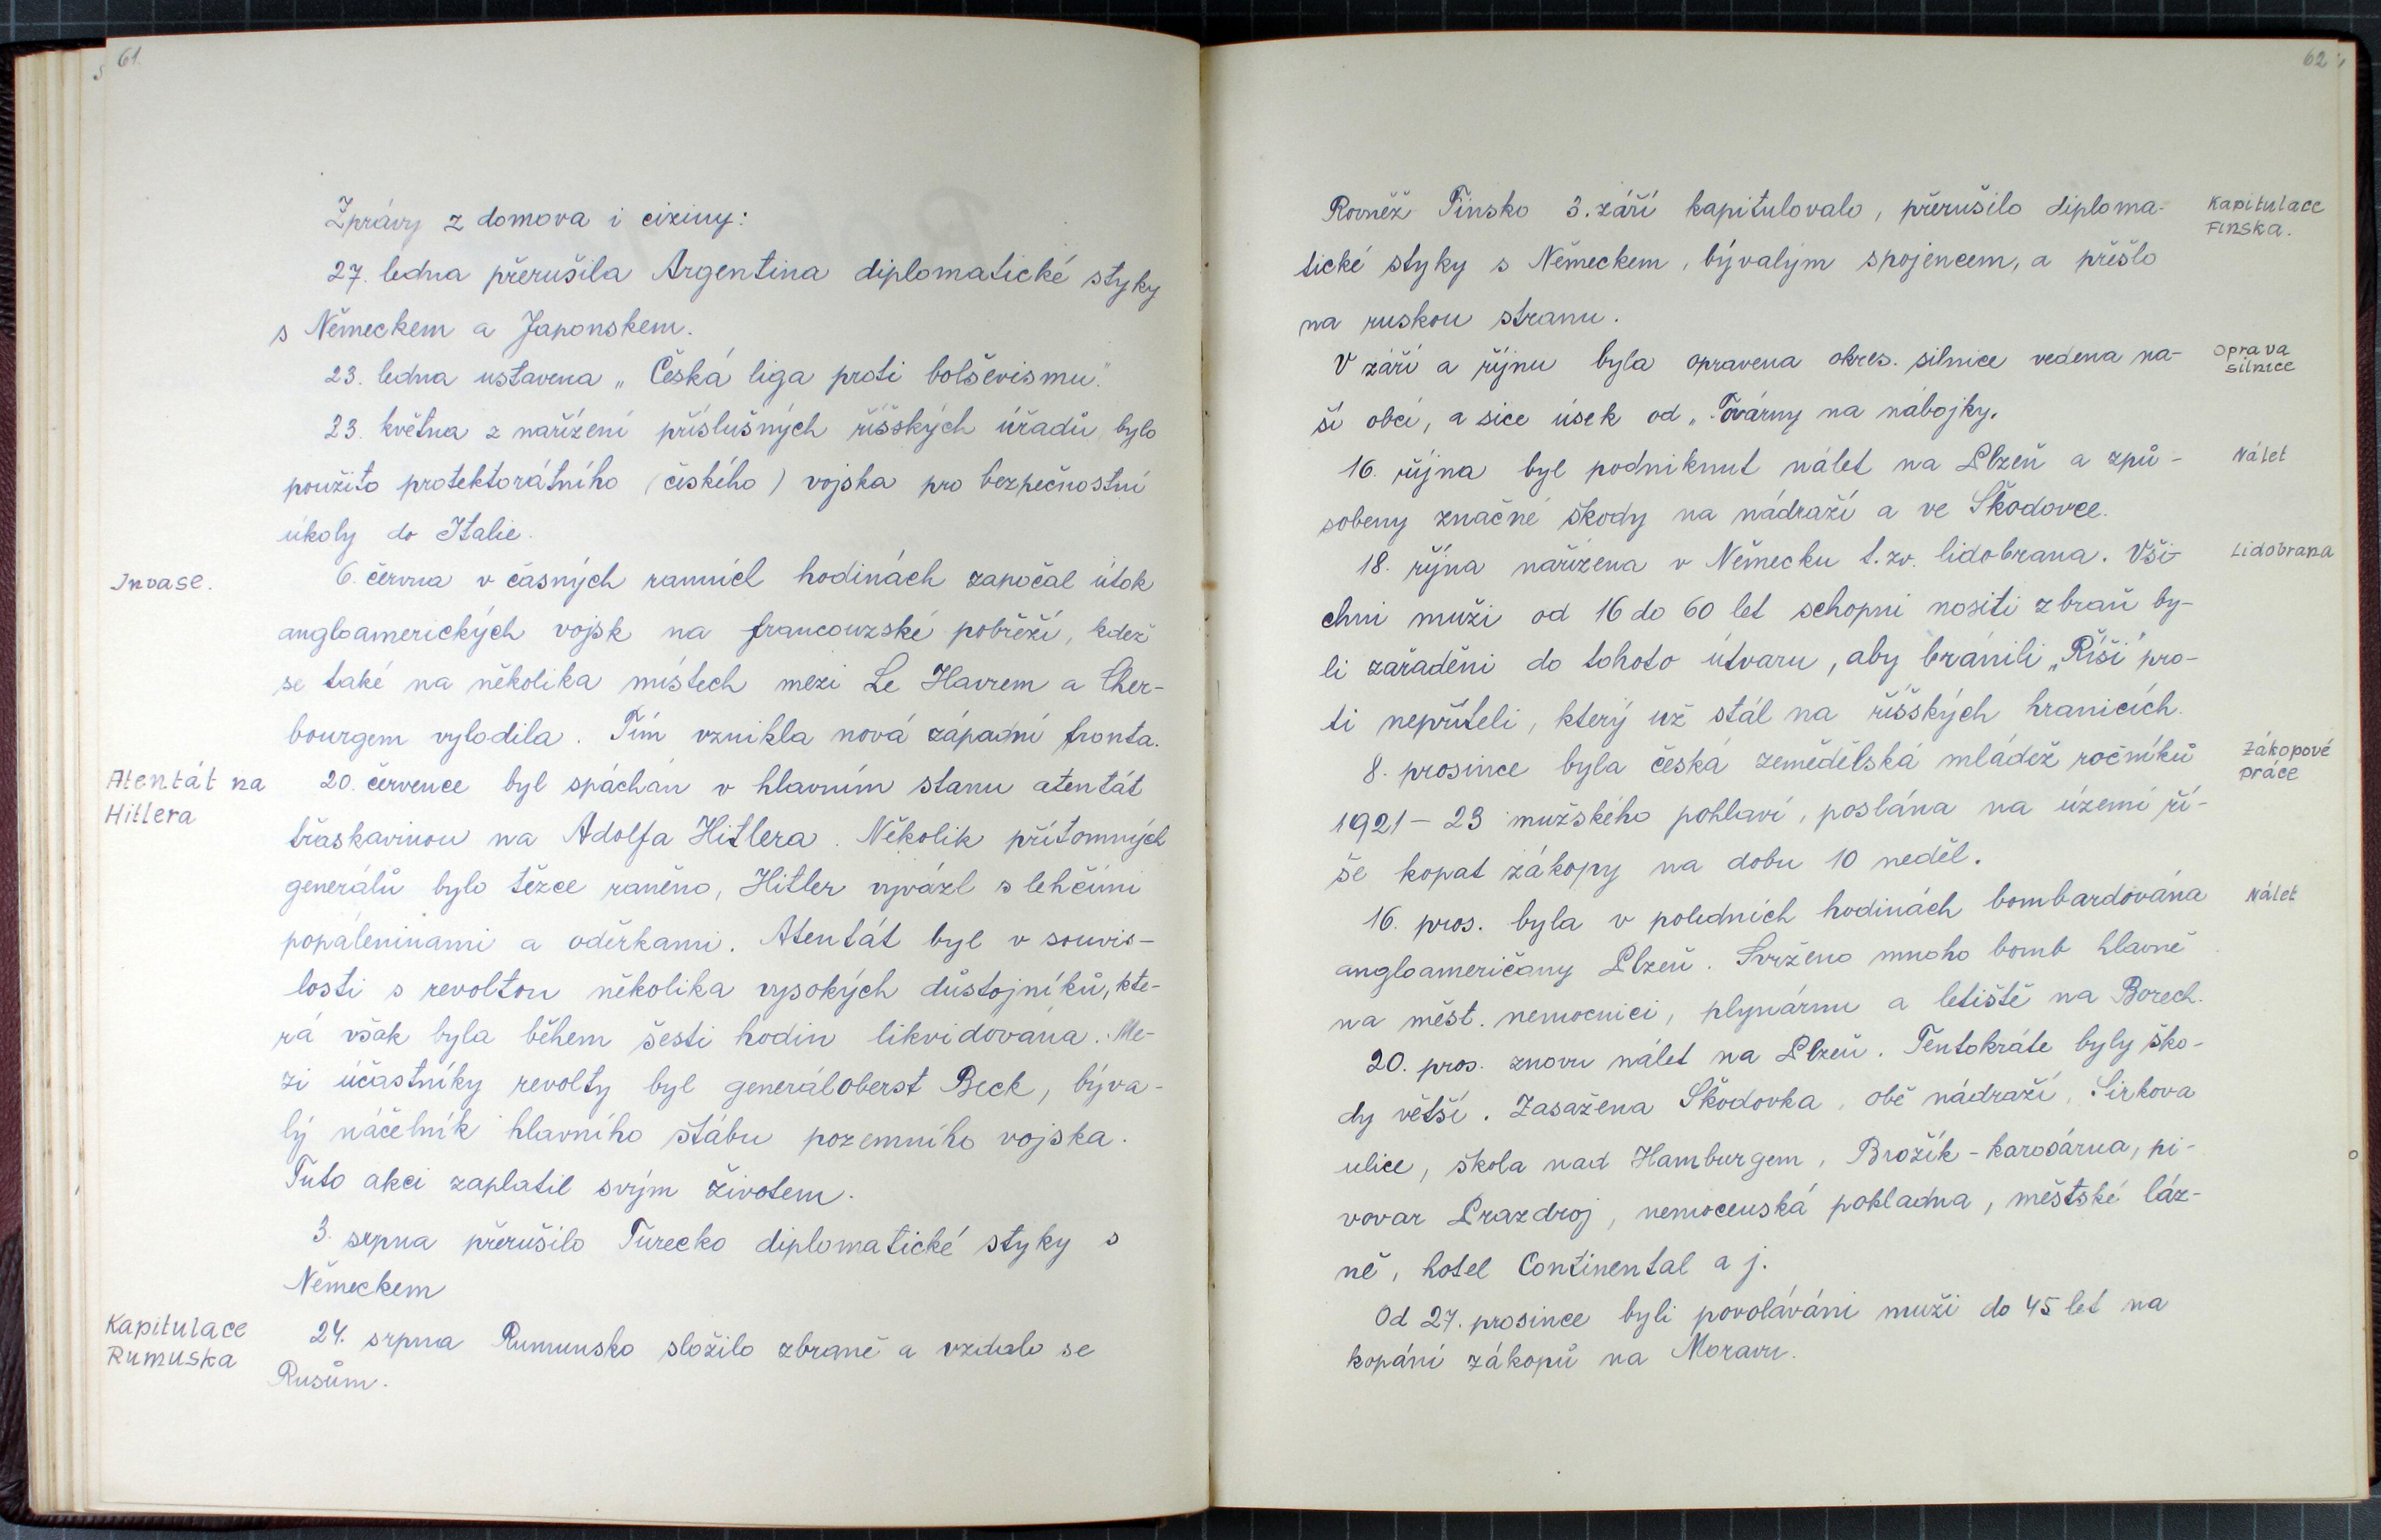 61.
Zprávy z domova i ciziny:
27. ledna přerušila Argentina diplomatické styky
s Německem a Japonskem.
23. ledna ustavena „Česká liga proti bolševismu."
23. května z nařízení příslušných říšských úřadů bylo
použito protektorátního (českého) vojska pro bezpečnostní
úkoly do Italie.
Invase.
6. června v časných ranních hodinách započal útok
angloamerických vojsk na francouzské pobřeží, kdež
se také na několika místech mezi Le Havrem a Cher-
bourgem vylodila. Tím vznikla nová západní fronta.
Atentát na
Hitlera
20. července byl spáchán v hlavním stanu atentát
třaskavinou na Adolfa Hitlera. Několik přítomných
generálů bylo těžce raněno, Hitler vyvázl s lehčími
popáleninami a oděrkami. Atentát byl v souvis-
losti s revoltou několika vysokých důstojníků, kte-
rá však byla během šesti hodin likvidována. Me-
zi účastníky revolty byl generáloberst Beck, býva-
lý náčelník hlavního štábu pozemního vojska.
Tuto akci zaplatil svým životem.
3. srpna přerušilo Turecko diplomatické styky s
Německem
Kapitulace
Rumuska
24. srpna Rumunsko složilo zbraně a vzdalo se
Rusům.
62
Rovněž Finsko 3. září kapitulovalo, přerušilo diploma-
tické styky s Německem, bývalým spojencem, a přešlo
na ruskou stranu.
Kapitulace
Finska.
V září a říjnu byla opravena okres. silnice vedena na-
ší obcí, a sice úsek od „Továrny na nábojky.
Oprava
silnice
16. října byl podniknut nálet na Plzeň a způ-
sobeny značné škody na nádraží a ve Škodovce.
Nálet
18. října nařízena v Německu t. zv. lidobrana. Vši-
chni muži od 16 do 60 let schopni nositi zbraň by-
li zařaděni do tohoto útvaru, aby bránili „Říši" pro-
ti nepříteli, který už stál na říšských hranicích.
Lidobrana
8. prosince byla česká zemědělská mládež ročníků
1921 - 23 mužského pohlaví, poslána na území ří-
še kopat zákopy na dobu 10 neděl.
Zákopové
práce
16. pros. byla v poledních hodinách bombardována
angloameričany Plzeň. Svrženo mnoho bomb hlavně
na měst. nemocnici, plynárnu a letiště na Borech.
Nálet
20. pros. znovu nálet na Plzeň. Tentokráte byly ško-
dy větší. Zasažena Škodovka, obě nádraží, Sirkova
ulice, škola nad Hamburgem, Brožík - karosárna, pi-
vovar Prazdroj, nemocenská pokladna, městské láz-
ně, hotel Continental a j.
Od 27. prosince byli povoláváni muži do 45 let na
kopání zákopů na Moravu.